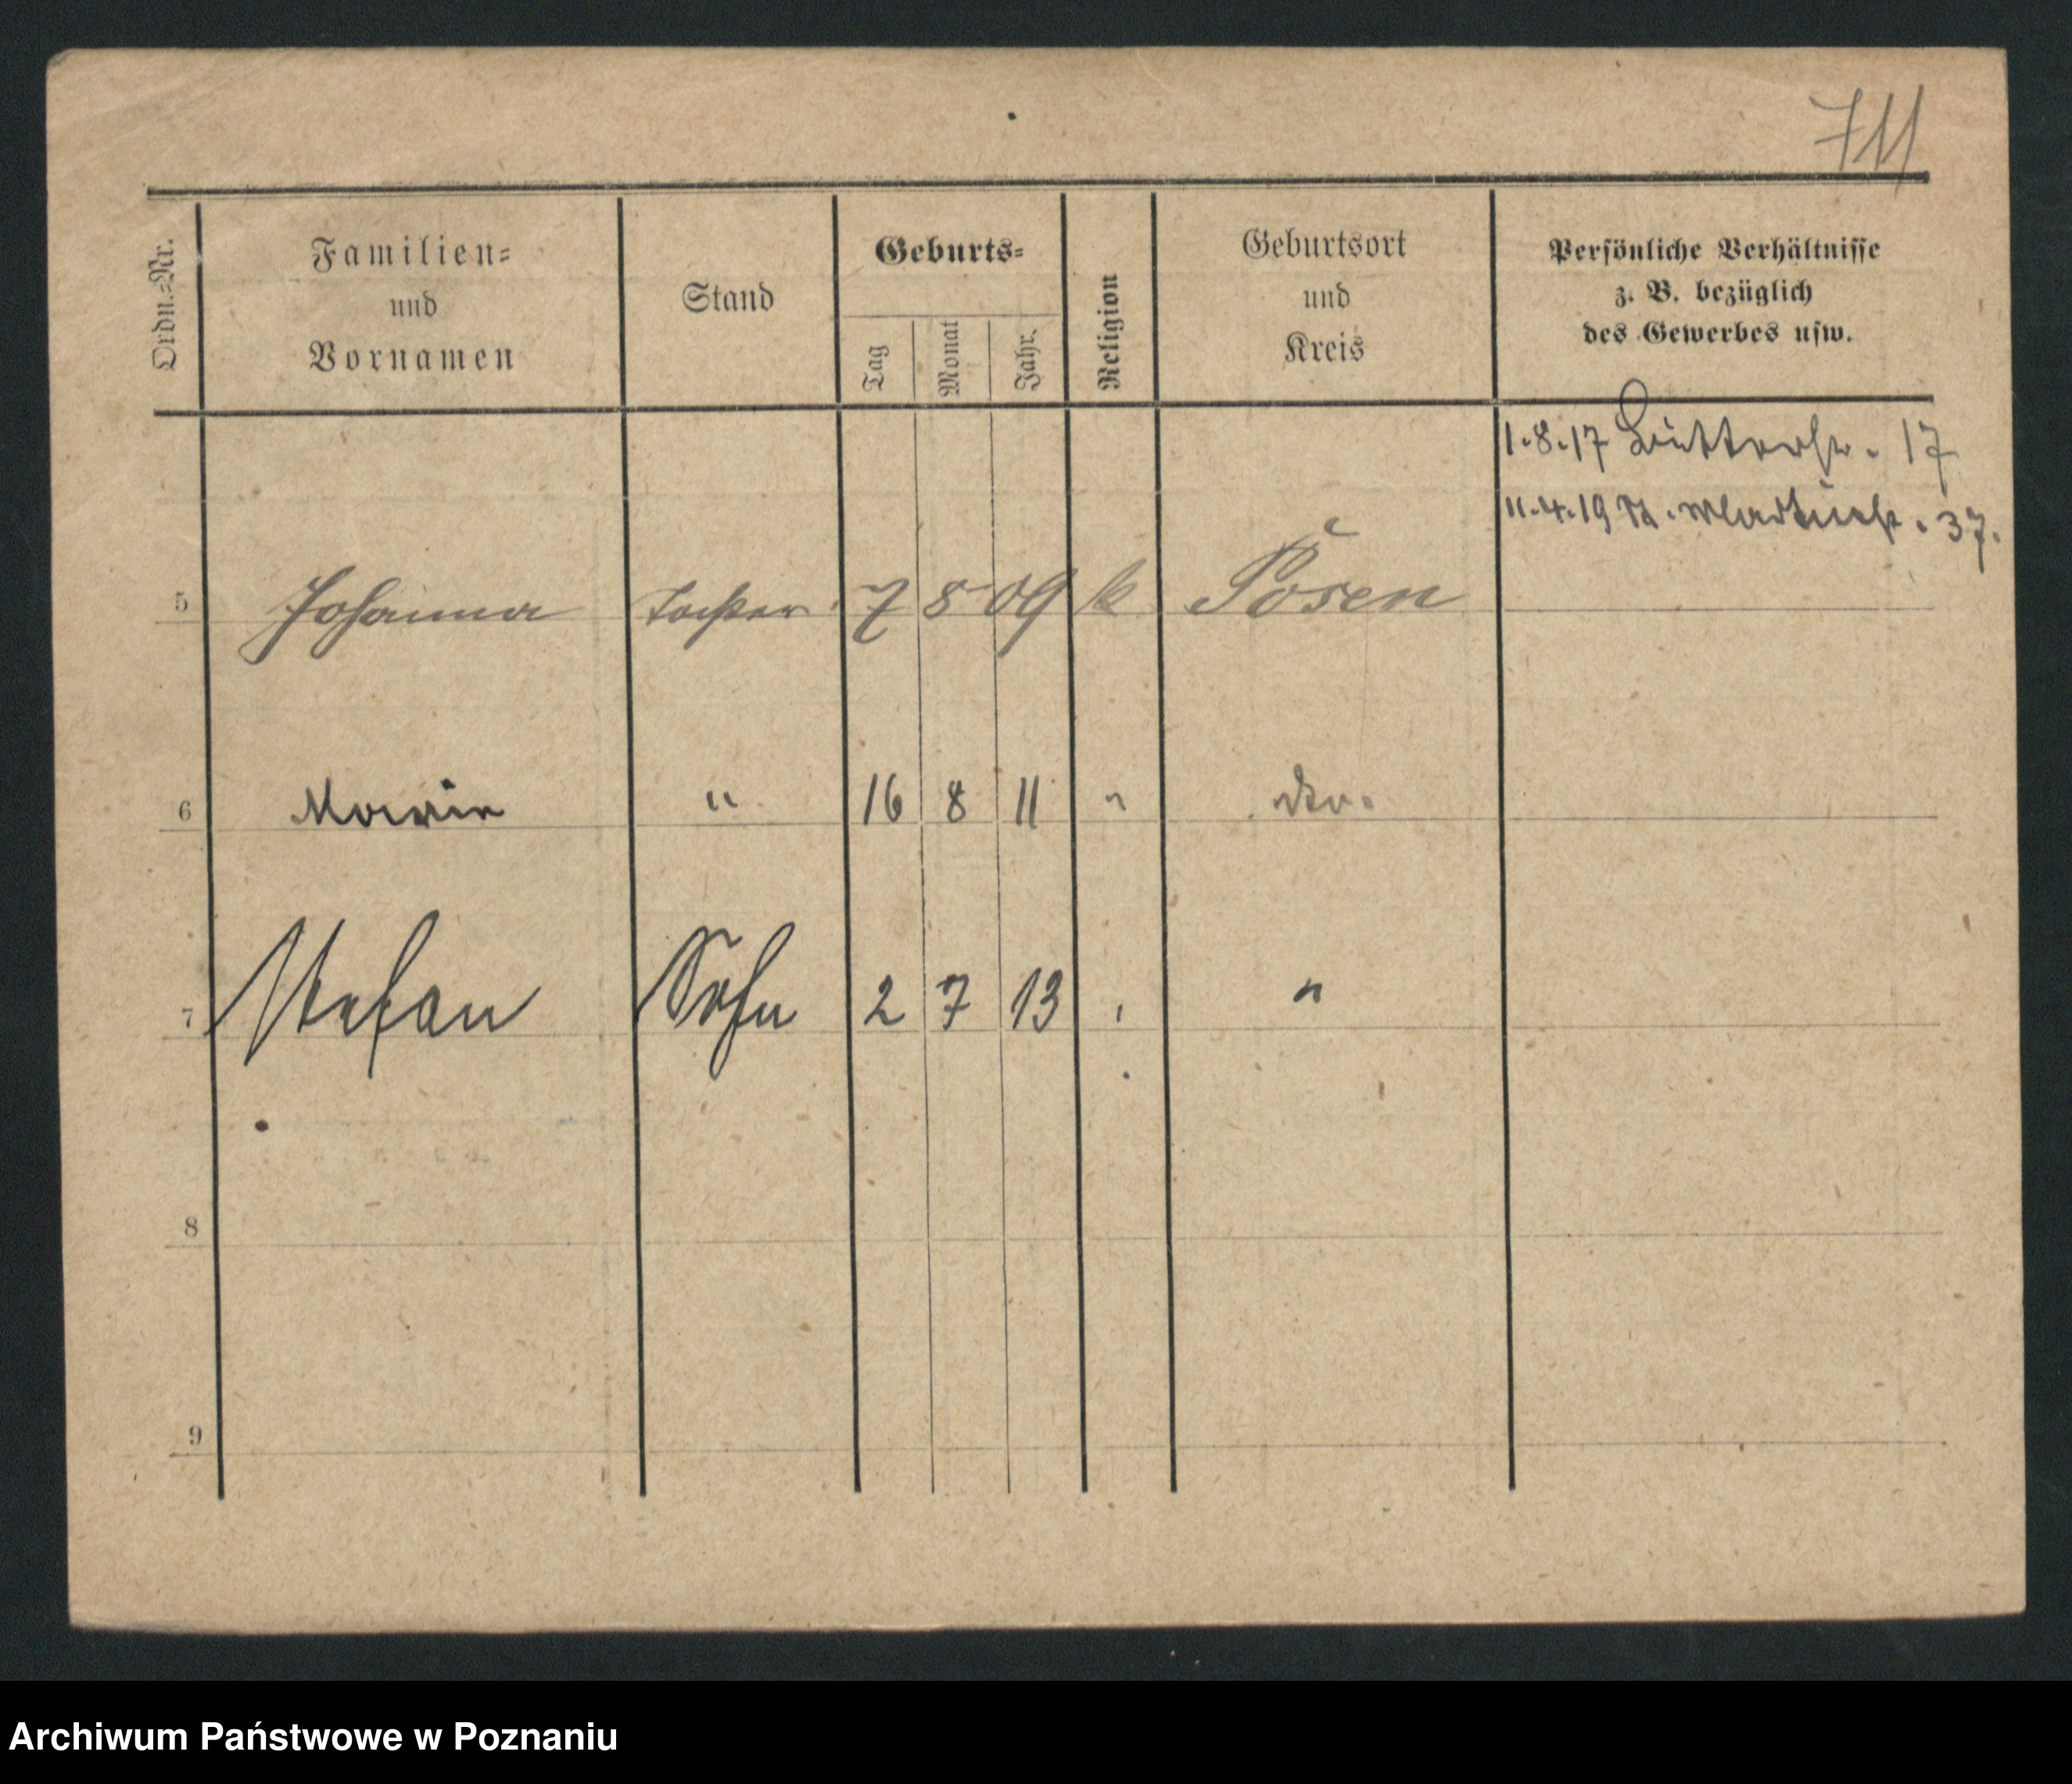 711
Ordn.-Nr.
Familien-
und
Vornamen
Stand
Geburts-
Tag
Monat
Jahr.
Religion
Geburtsort
und
Kreis
Persönliche Verhältnisse
z. B. bezüglich
des Gewerbes usw.
1.8.17 17
11.4.19 37.
5 Johanna Tochter 7 8 09 k Posen
6 Maria " 16 8 11 " dto.
7 Stefan Sohn 2 7 13 "
8
9
Archiwum Państwowe w Poznaniu